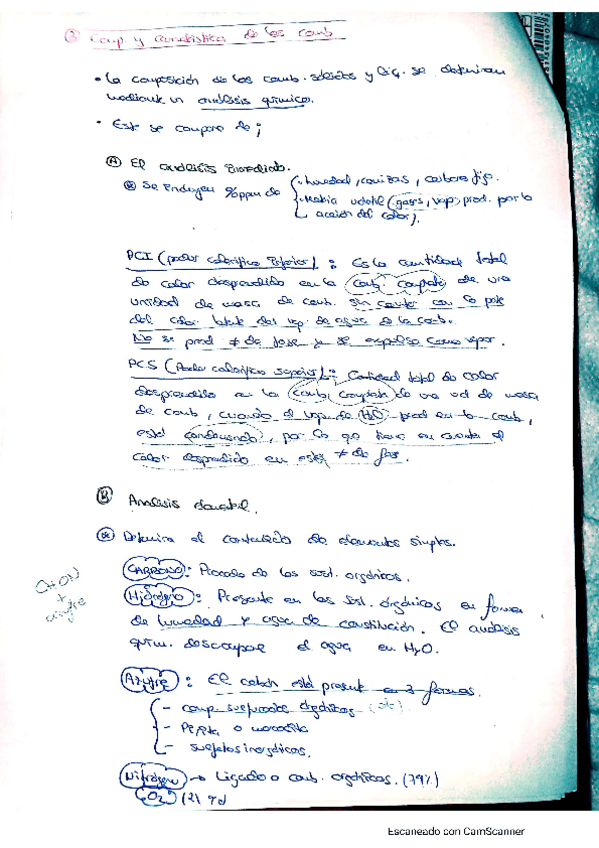 ② Comp y características de los comb
• La composición de los comb. sólidos y líq. se determinan
mediante un análisis químico.
• Este se compone de ;
Ⓐ El análisis inmediato.
Se incluyen %ppm de humedad, cenizas, carbono fijo.
Materia volátil (gases, vap. prod. por la
acción del calor).
PCI (poder calorífico inferior): Es la cantidad total
de calor desprendido en la comb. completa de una
unidad de masa de comb. sin contar con la pte
del calor latente del vap. de agua de la comb.
No se prod ≠ de fase y se expulsa como vapor.
PCS (Poder calorífico superior): Cantidad total de calor
desprendido en la comb. completa de una ud de masa
de comb, cuando el vap de H2O prod en la comb,
está condensado, por lo que tiene en cuenta el
calor desprendido en este ≠ de fas.
Ⓑ Análisis elemental.
Determina el contenido de elementos simples.
CARBONO: Procede de las sust. orgánicas.
CHON
+
azufre
Hidrógeno: Presente en las sust. orgánicas en forma
de humedad y agua de constitución. El análisis
quím. descompone el agua en H2O.
Azufre: El carbón está present en 3 formas.
- comp sulfurados orgánicos
- Pirita o marcasita
- sulfatos inorgánicos.
Nitrógeno → Ligado a comb. orgánicos. (79%)
O2 (21
Escaneado con CamScanner